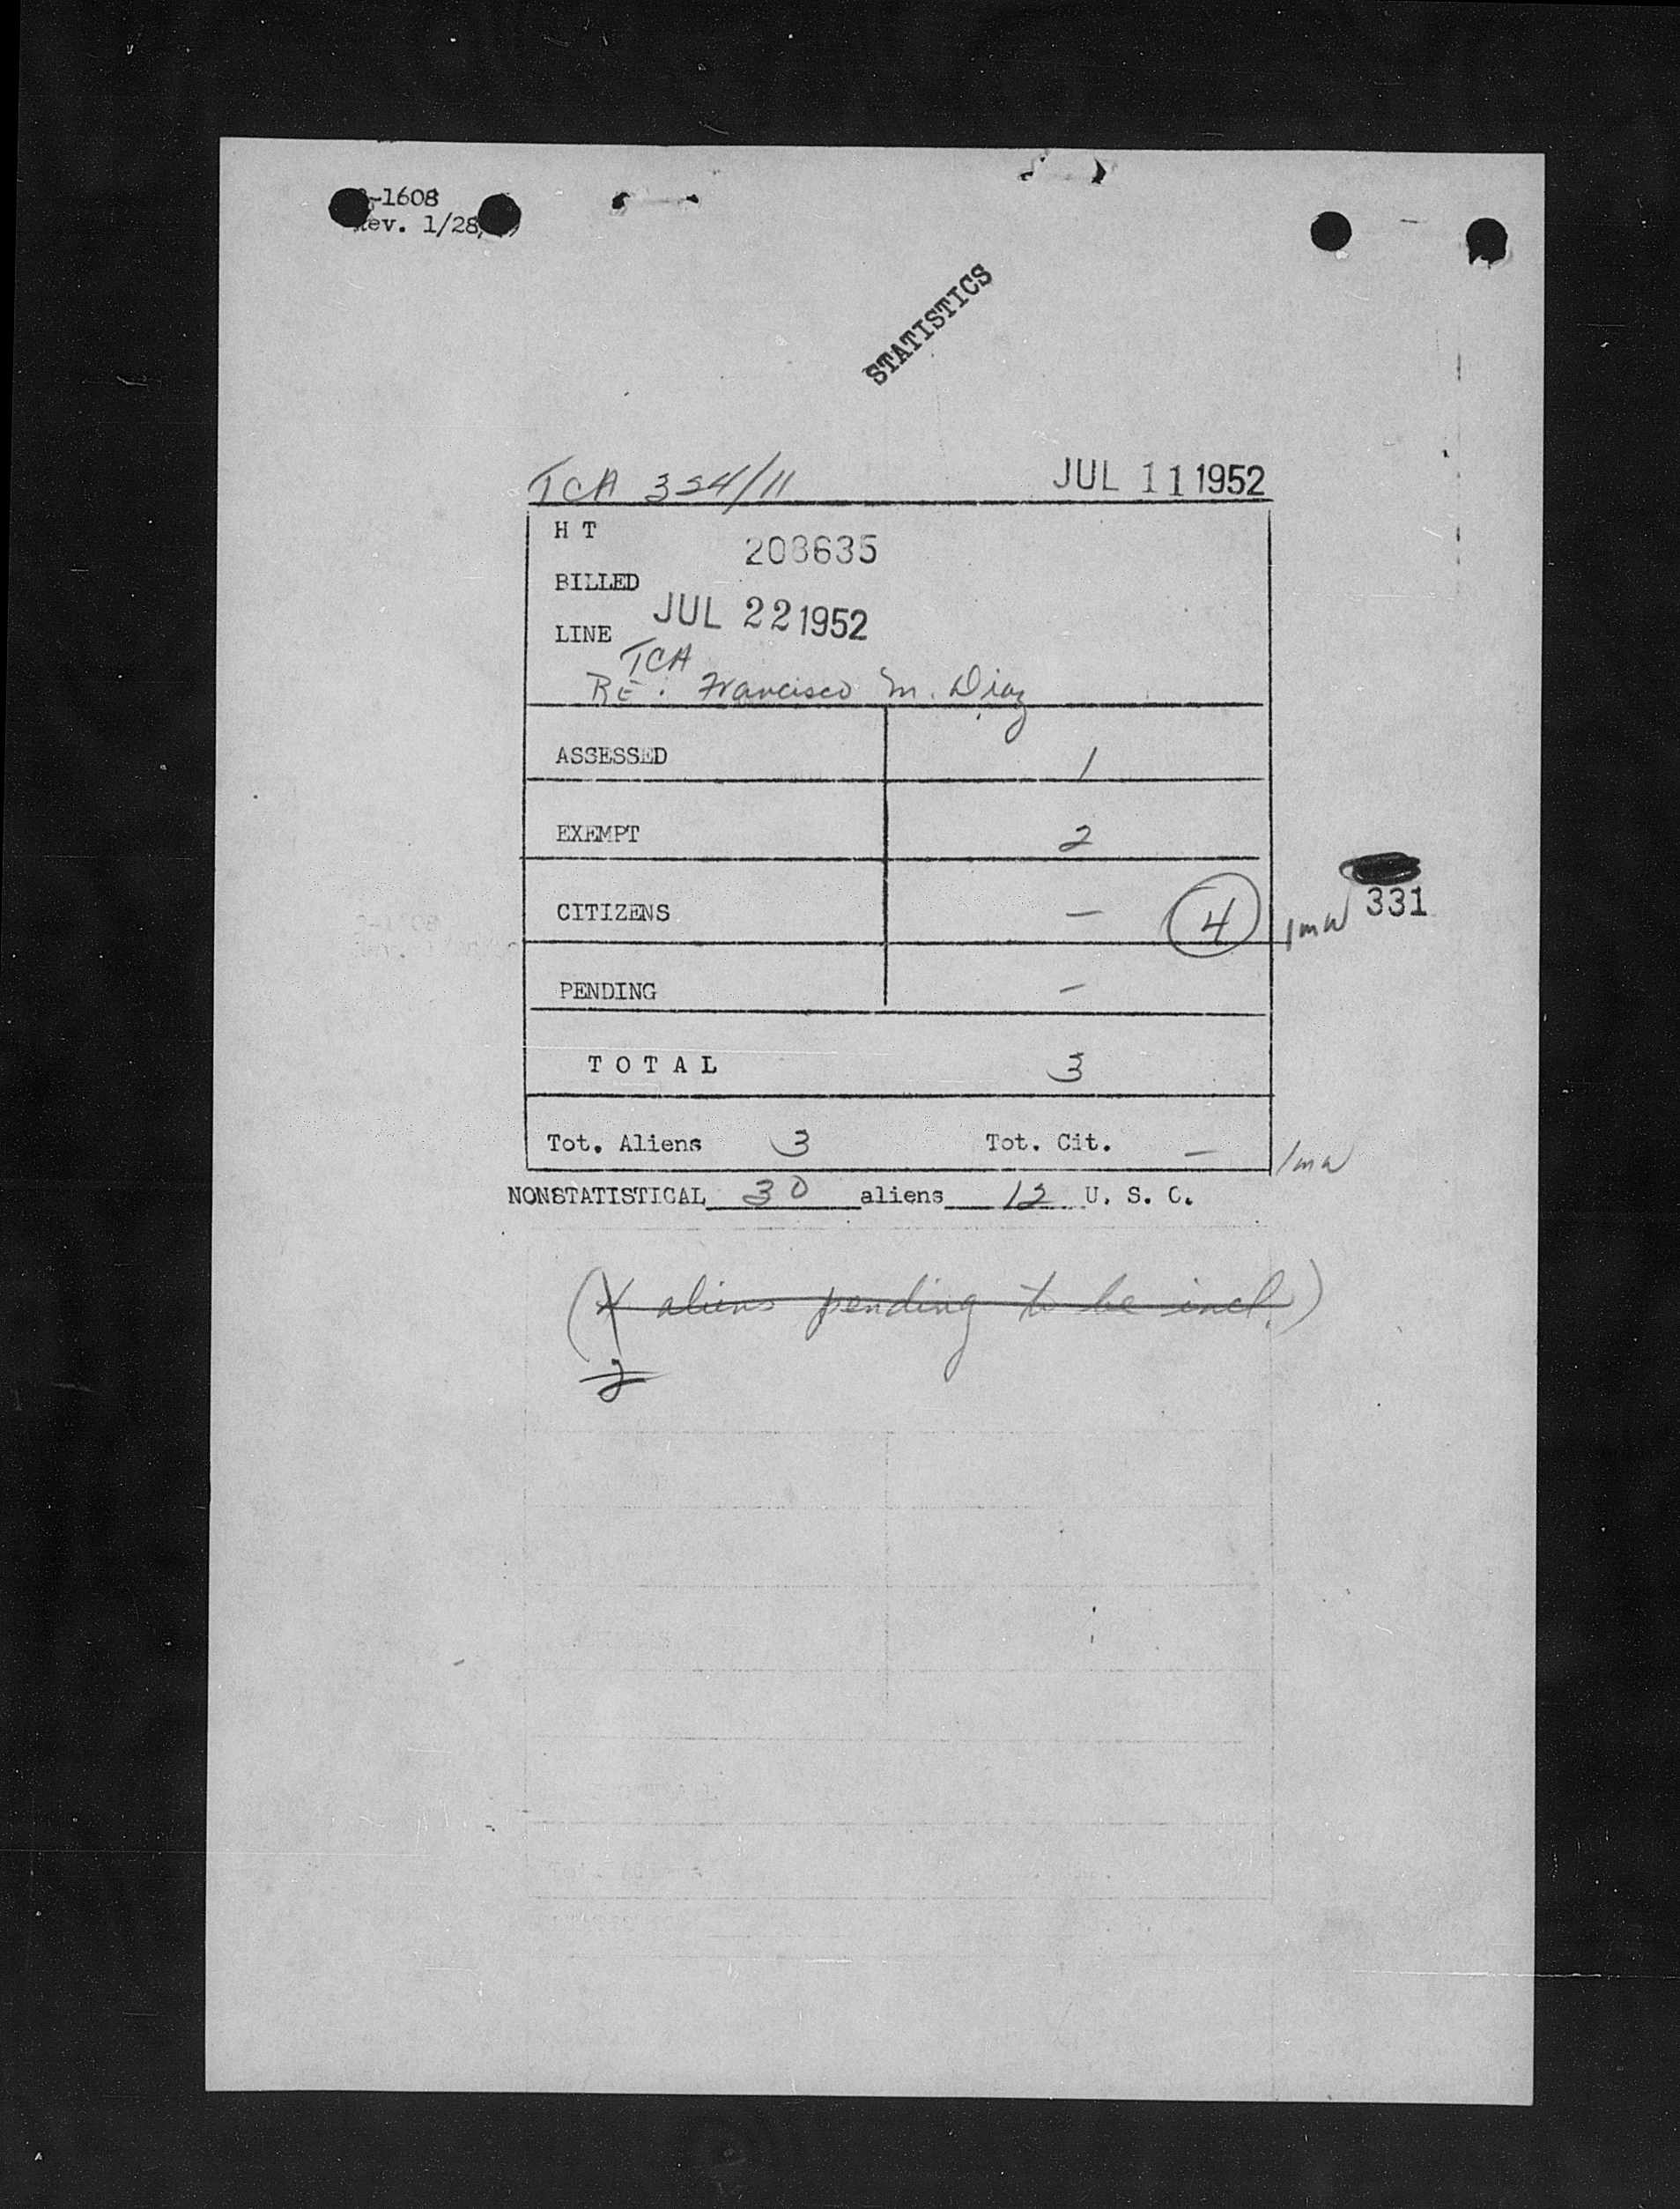 -1608
ev. 1/28/
STATISTICS
TCA 324/11 JUL 11 1952
H T
208635
BILLED
JUL 22 1952
LINE
TCA
RE: Francisco M. Diaz
ASSESSED 1
EXEMPT 2
331
CITIZENS — 4
PENDING —
T O T A L 3
Tot. Aliens 3 Tot. Cit. —
NONSTATISTICAL 30 aliens 12 U. S. C.
( aliens pending to be incl.)
2